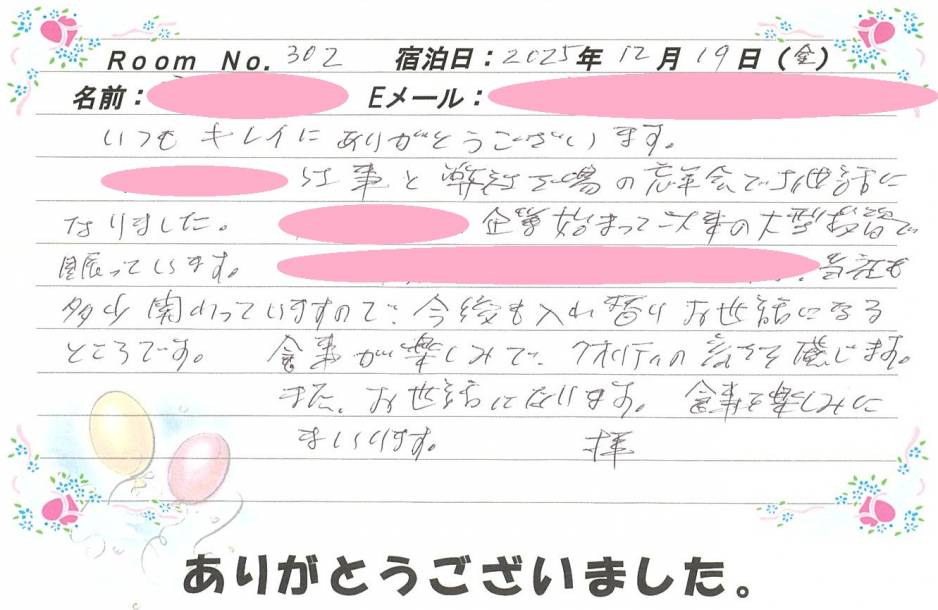 Room No. 302 宿泊日：2025年12月19日（金）
名前： Eメール：
いつもキレイにありがとうございます。
工事と弊社工場の忘年会でお世話に
なりました。 企業始まって以来の大型投資で
賑っています。 当社も
多少関わっていますので、今後も入れ替りお世話になる
ところです。 食事が楽しみで、クオリティの高さを感じます。
また、お世話になります。食事を楽しみに
まいります。 拝
ありがとうございました。